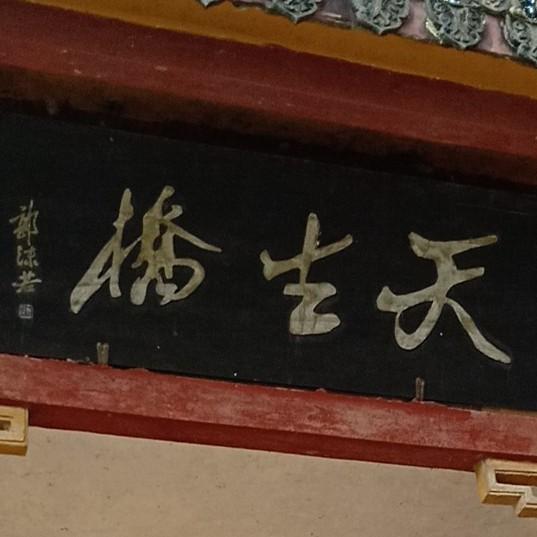 天生橋
郭沫若